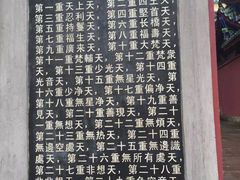 第一重天上天，第二重四
第三重忉利天，第四重堅首
第五重持鬘天，第六重
第七重福生天，第八重福
第九重廣果天，第十重
第十一重梵輔天，第十二重梵眾
天，第十三重少光天，第十四重
光音天，第十五重無量光天，第
十六重少淨天，第十七重偏淨天，
第十八重無星淨天，第十九重善
見天，第二十重善現天，第二十
一重無想天，第二十二重無煩天，
第二十三重無熱天，第二十四重
無邊空處天，第二十五重無邊識
處天，第二十六重無所有處天，
第二十七重非想天，第二十八重